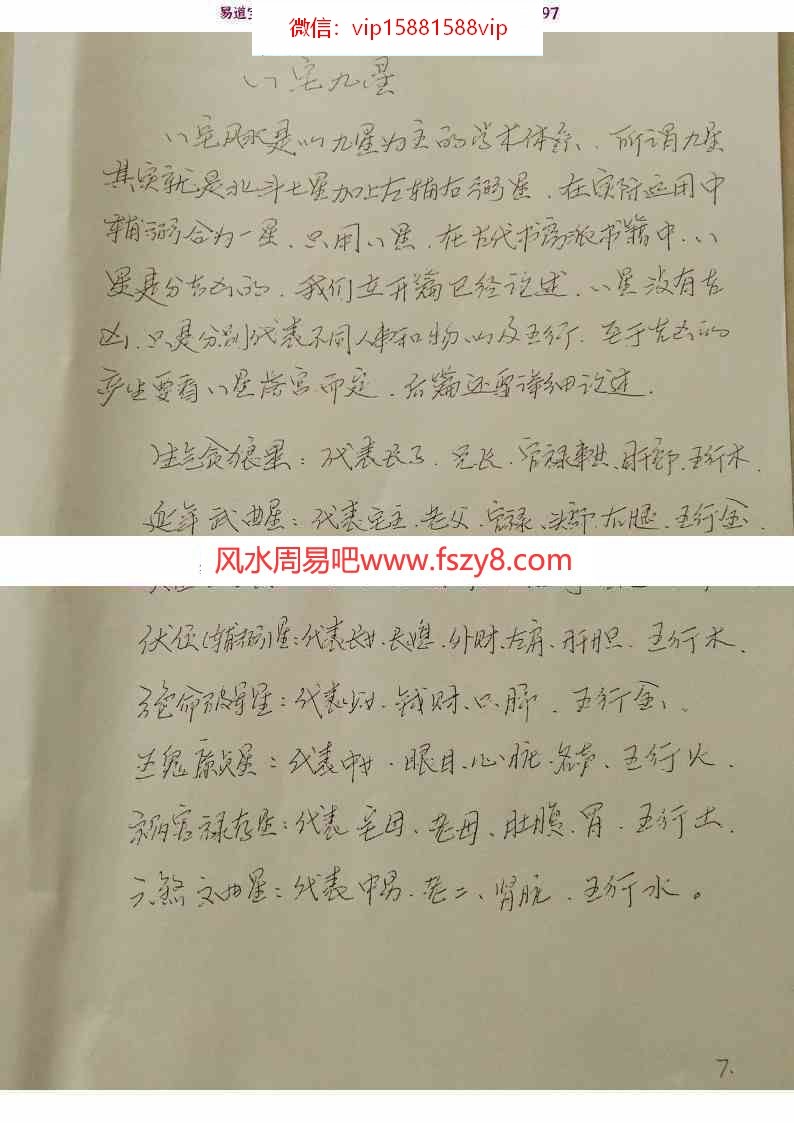 易道
97
微信：vip15881588vip
八宅九星
八宅风水是以九星为主的学术体系、所谓九星
其实就是北斗七星加上左辅右弼星、在实际运用中
辅弼合为一星、只用八星、在古代书籍中、八
星是分吉凶的、我们立开篇已经论述、八星没有吉
凶、只是分别代表不同人事和物以及五行、至于吉凶的
产生要看八星落宫而定、后篇还要详细论述.
生气贪狼星：代表长子、兄长、官禄事业、肝部、五行木.
延年武曲星：代表宅主、老父、官禄、头部、右腿、五行金、
风水周易吧www.fszy8.com
伏位(辅弼)星：代表长女、长媳、外财、左肩、肝胆、五行木.
绝命破军星：代表少女、钱财、口、肺、五行金、
五鬼廉贞星：代表中女、眼目、心脏、名声、五行火.
祸害禄存星：代表宅母、老母、肚腹、胃、五行土.
六煞文曲星：代表中男、老二、肾脏、五行水。
7.